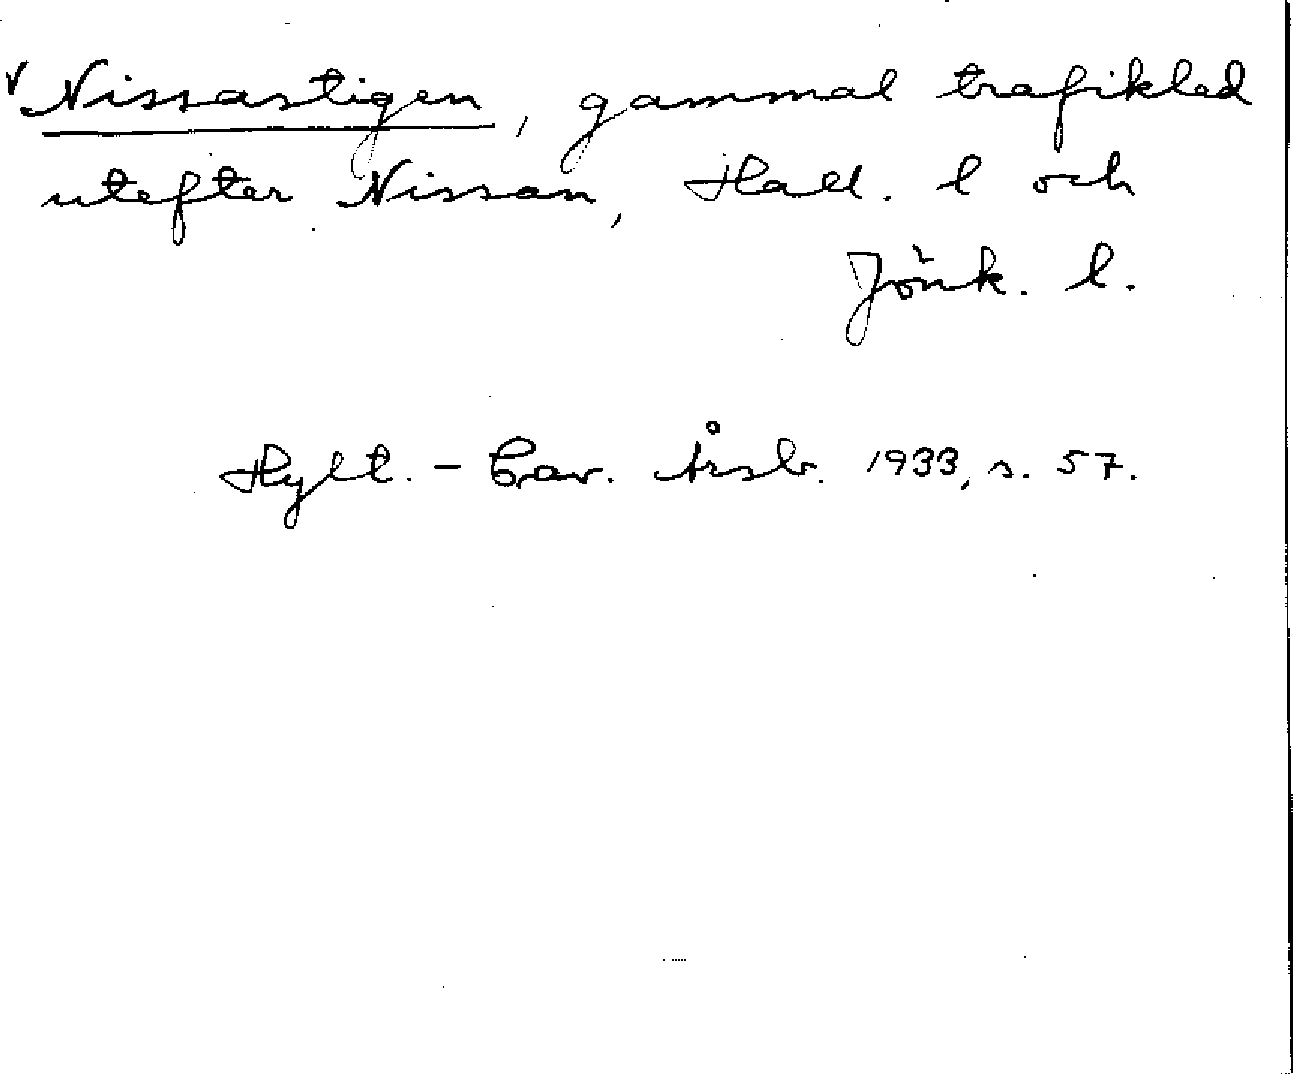 √ Nissastigen, gammal trafikled
utefter Nissan, Hall. l och
Jönk. l.
Hylt.-Cav. Årsb. 1933, s. 57.